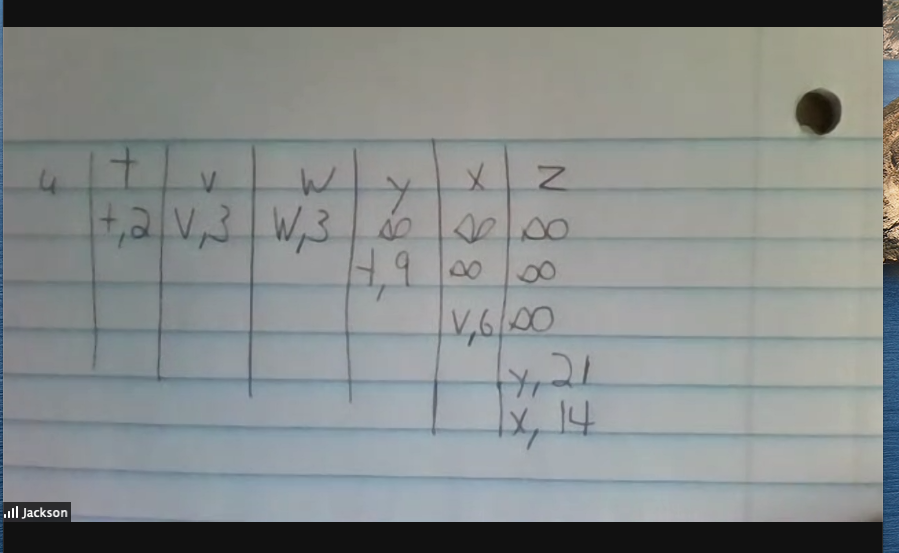 u t v w y x z
t,2 v,3 w,3 ∞ ∞ ∞
t,9 ∞ ∞
v,6 ∞
y,21
x,14
Jackson